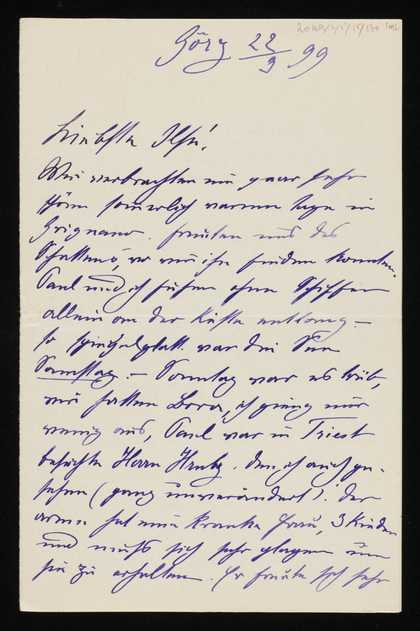 Görz 22/9 99
Liebste Ilse!
Wir verbrachten ein paar sehr
schöne sommerlich warme Tage in
Grignano. freuten uns des
Schattens, wo wir ihn finden konnten.
Paul und ich fuhren ohne Schiffer
allein an der Küste entlang. –
so spiegelglatt war die See
Samstag. – Sonntag war es trüb,
wir hatten Bora, ich ging nur
wenig aus, Paul war in Triest
besuchte Herrn den ich auch ge-
sehen (ganz unverändert). Der
arme hat eine kranke Frau, 3 Kinder
und muß sich sehr plagen um
sie zu erhalten. Er freute sich sehr